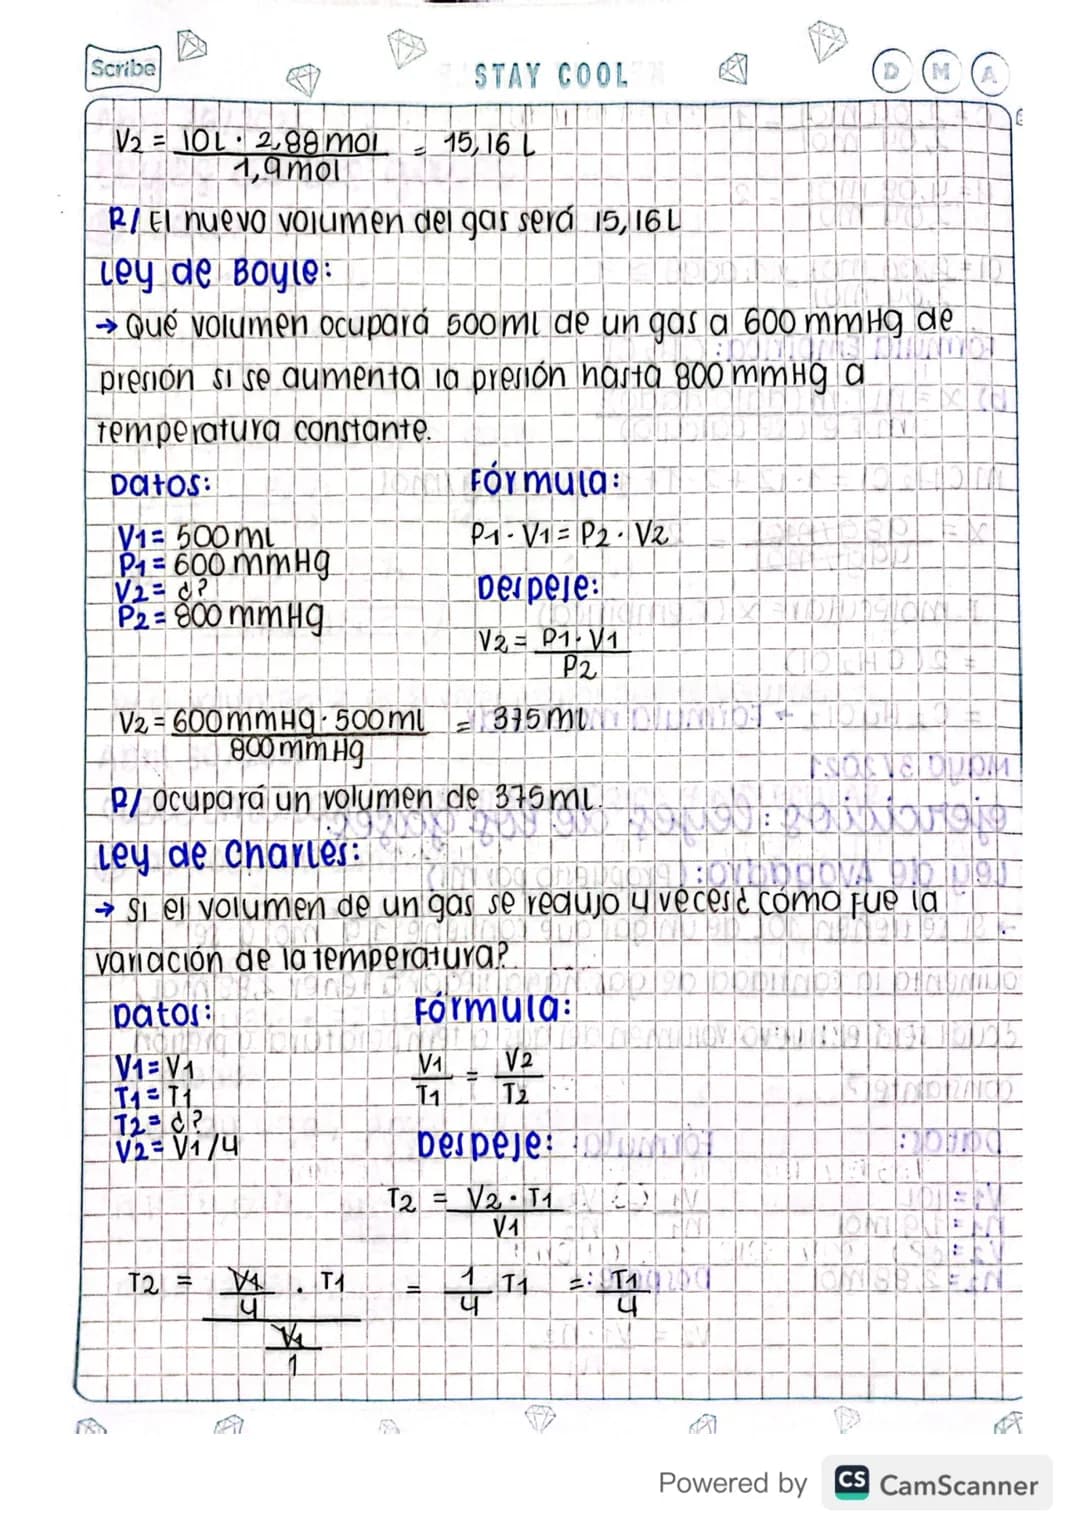 Scribe
STAY COOL
D M A
V2 = 10L · 2,88mol / 1,9mol = 15,16 L
R/ El nuevo volumen del gas será 15,16L
Ley de Boyle:
→ Qué volumen ocupará 500ml de un gas a 600 mmHg de
presión si se aumenta la presión hasta 800 mmHg a
temperatura constante.
Datos: Fórmula:
V1 = 500ml P1 · V1 = P2 · V2
P1 = 600 mmHg
V2 = ¿? Despeje:
P2 = 800 mmHg
V2 = P1 · V1 / P2
V2 = 600mmHg · 500ml / 800mmHg = 375ml
R/ ocupará un volumen de 375ml.
Ley de Charles:
→ Si el volumen de un gas se redujo 4 veces ¿cómo fue la
variación de la temperatura?
Datos: Fórmula:
V1 = V1 V1 / T1 = V2 / T2
T1 = T1
T2 = ¿?
V2 = V1/4 Despeje:
T2 = V2 · T1 / V1
T2 = V1/4 · T1 / V1/1 = 1/4 T1 = T1/4
Powered by CS CamScanner